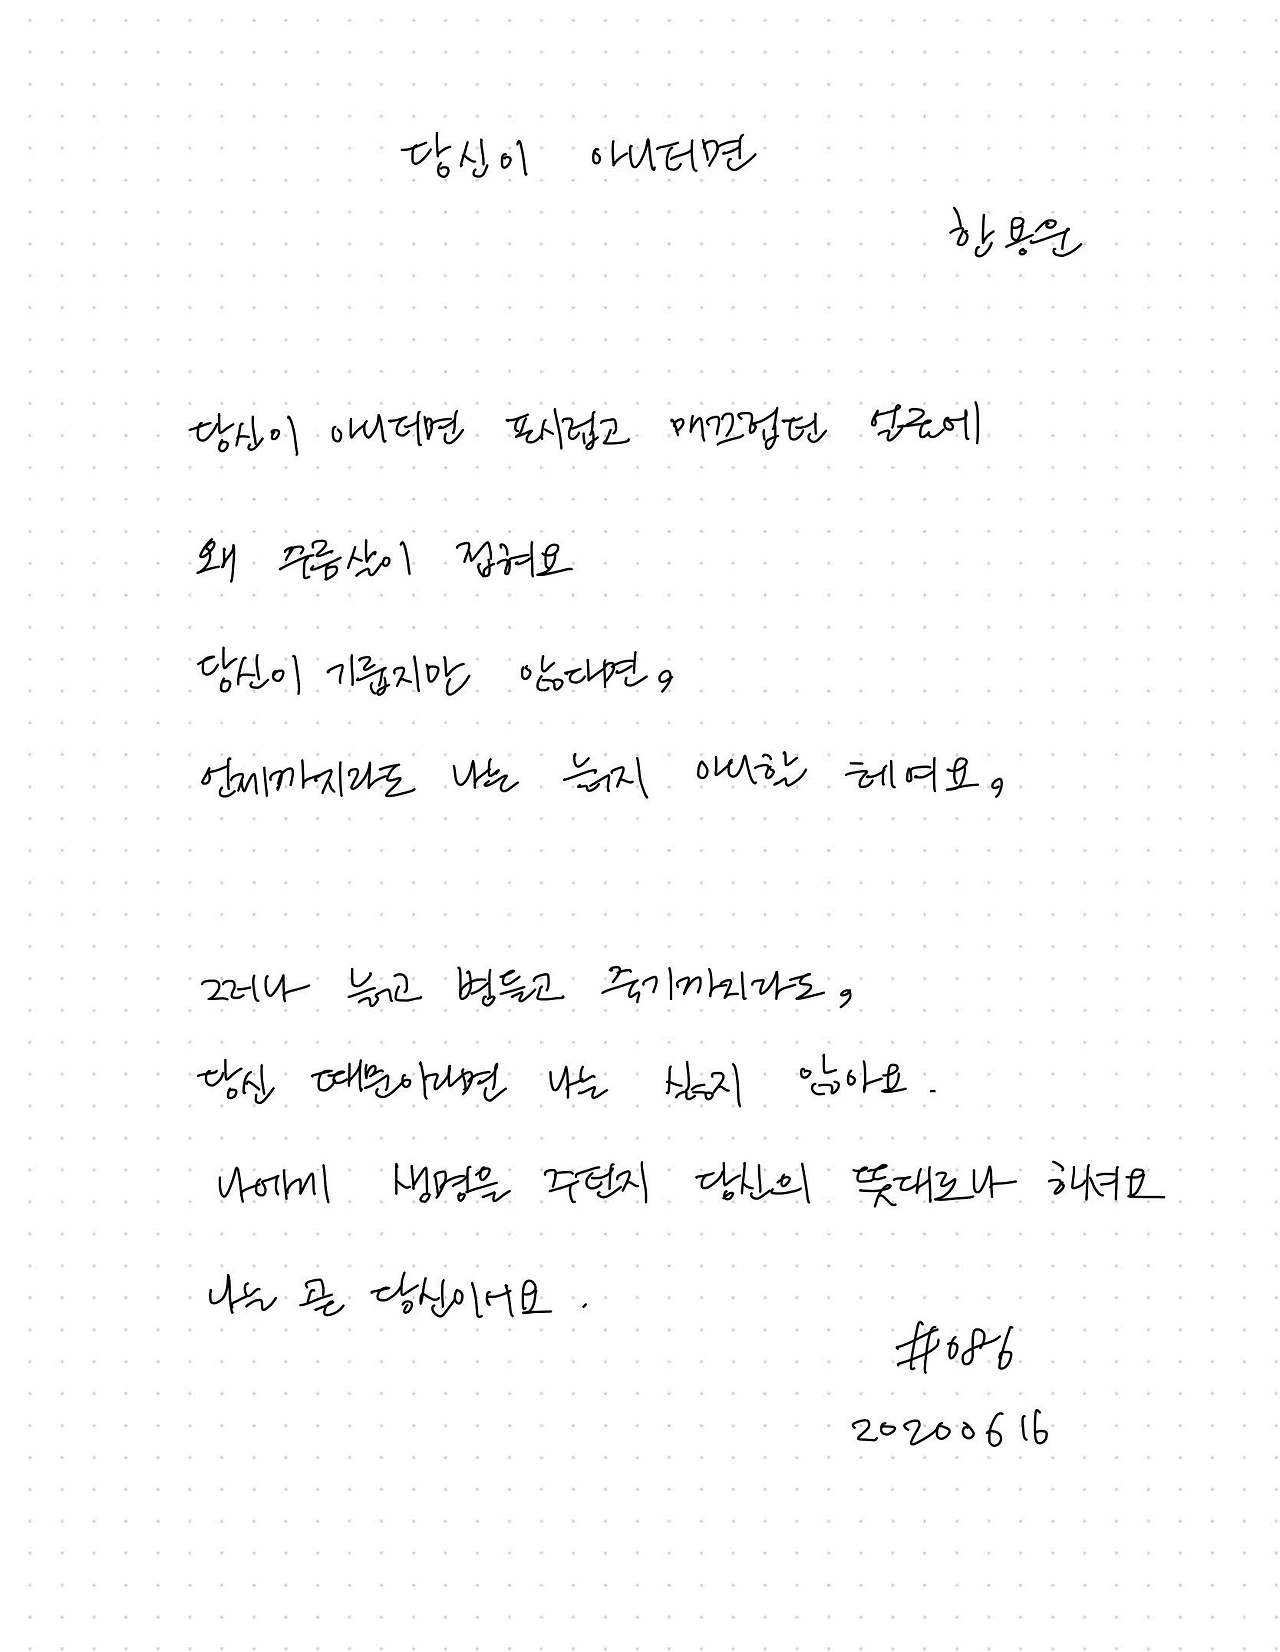 당신이 아니더면
한용운
당신이 아니더면 포시럽고 매끄럽던 얼굴에
왜 주름살이 접혀요
당신이 기룹지만 않다면,
언제까지라도 나는 늙지 아니할 테여요,
그러나 늙고 병들고 죽기까지라도,
당신 때문이라면 나는 싫지 않아요.
나에게 생명을 주던지 당신의 뜻대로나 하셔요
나는 곧 당신이어요.
#086
20200616